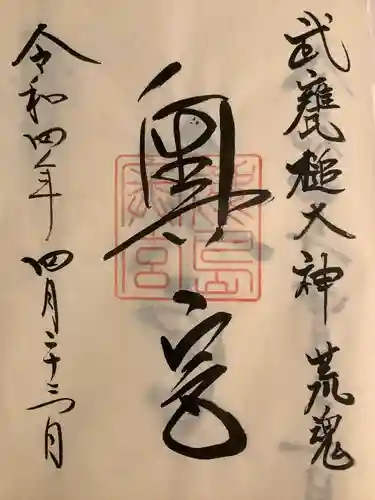 武甕槌大神 荒魂
奥宮
鹿島奥宮
令和四年 四月二十三日